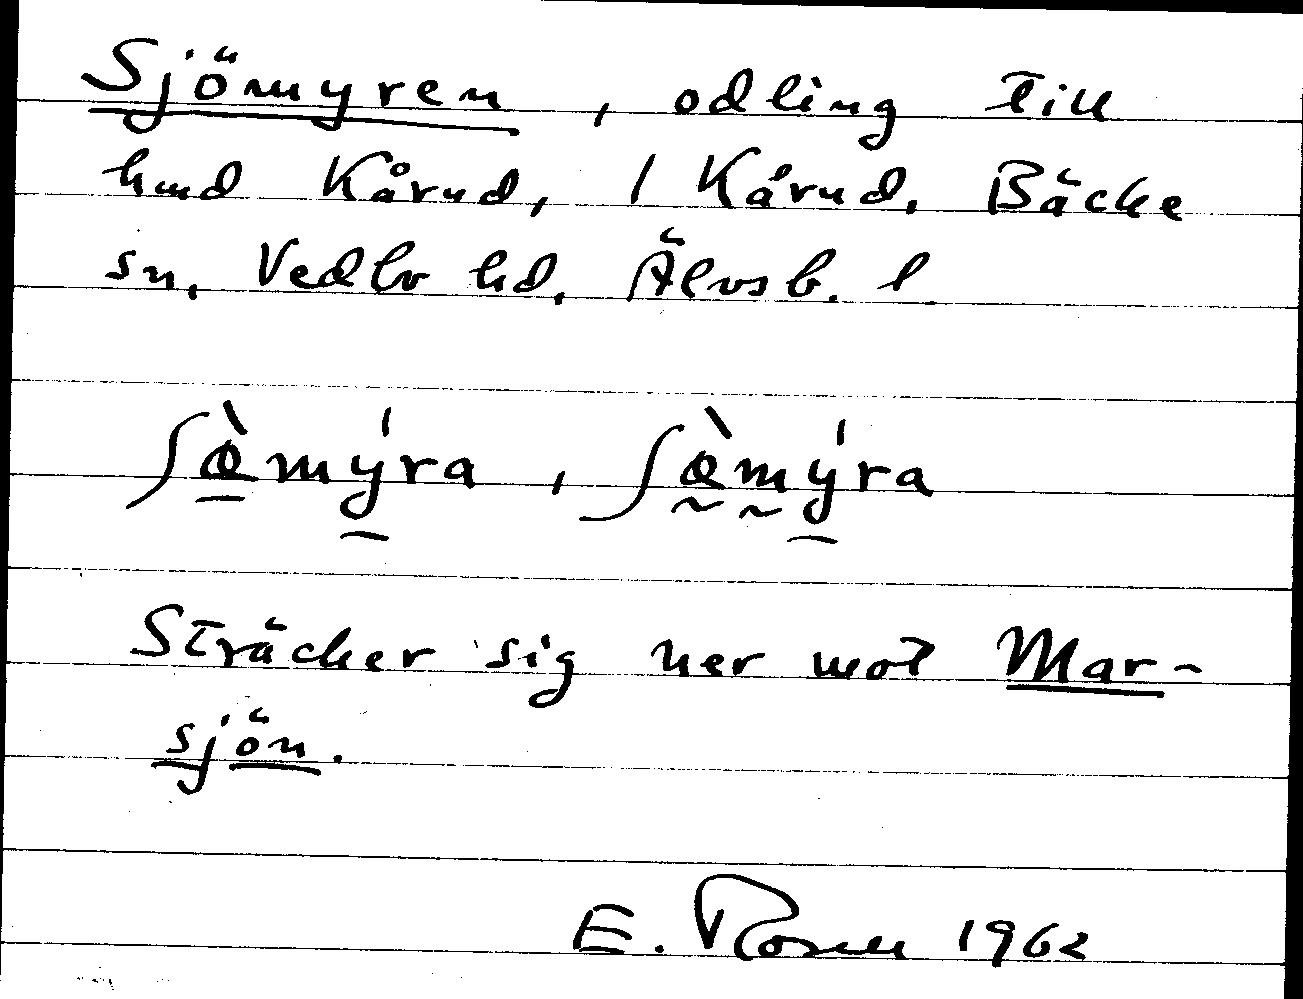 Sjömyren, odling till
hmd Kårud, 1 Kårud. Bäcke
sn, Vedbo hd. Älvsb. l
ʃœ̀mýra, ʃœ̀mýra
Sträcker sig ner mot Mar-
sjön.
E. Rosell 1962